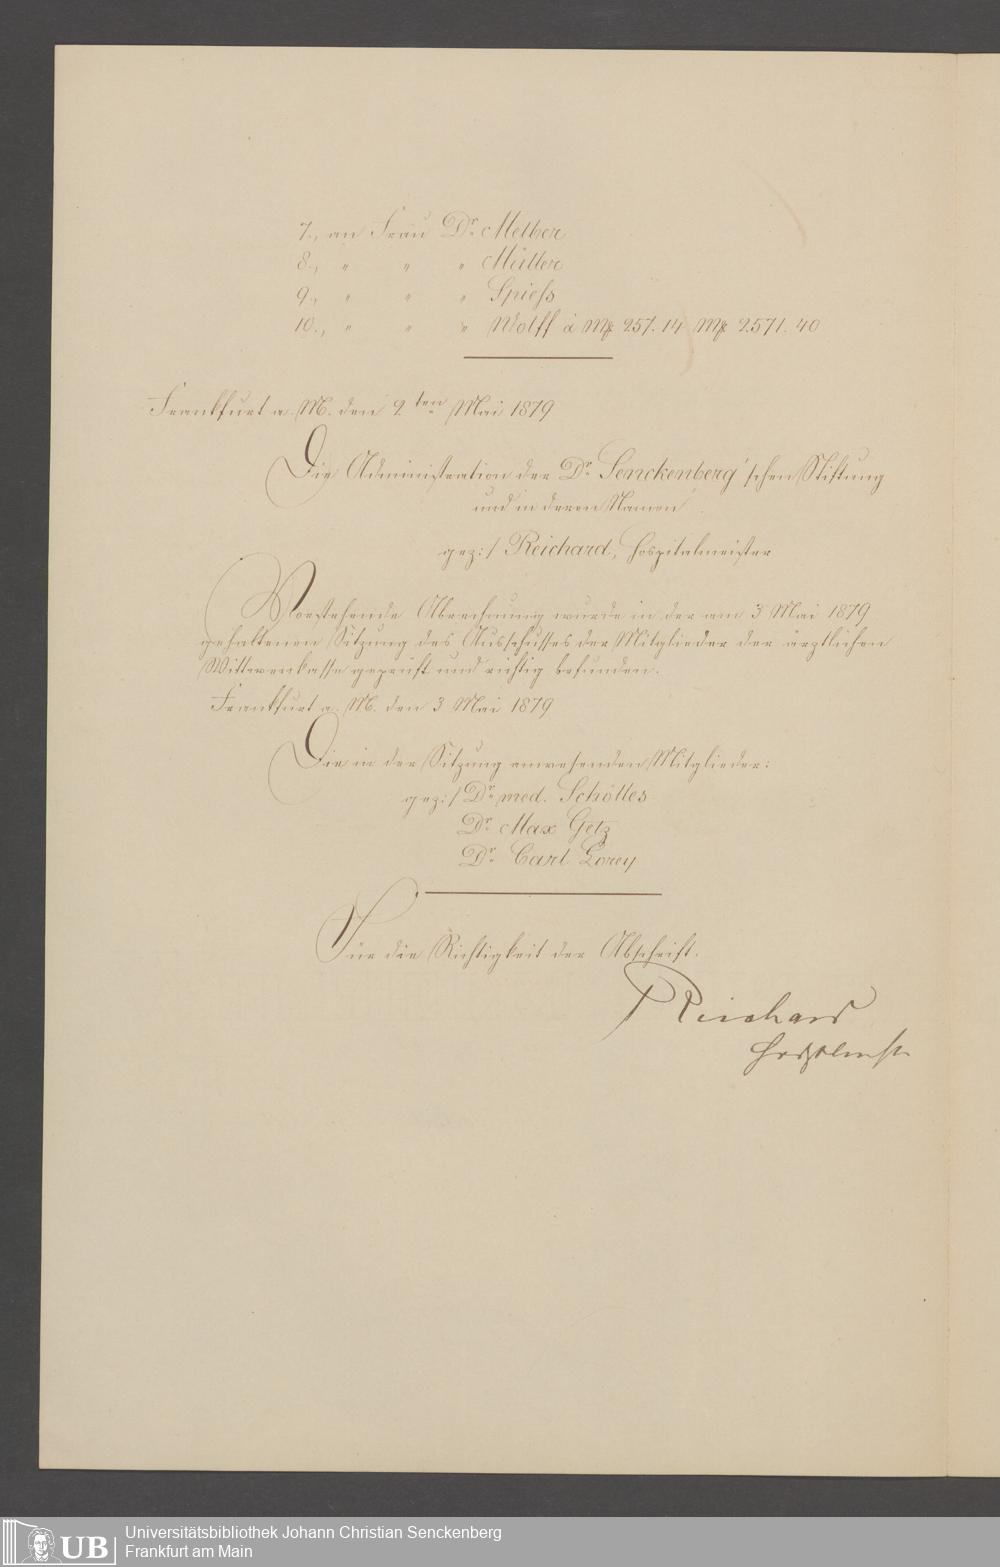 7., an Frau Dr. Melber
8., " " " Müller
9., " " " Spiess
10., " " " Wolff à Mk 257. 14 Mk 2571. 40
Frankfurt a. M. den 2ten Mai 1879
Die Administration der Dr. Senckenberg'schen Stiftung
und in deren Namen
gez:/ Reichard, Hospitalmeister
Vorstehende Abrechnung wurde in der am 3 Mai 1879
gehaltenen Sitzung des Ausschusses der Mitglieder der ärztlichen
Wittwenkasse geprüft und richtig befunden.
Frankfurt a. M. den 3 Mai 1879
Die in der Sitzung anwesenden Mitglieder:
gez:/ Dr. med. Schölles
Dr. Max Getz
Dr. Carl Lorey
Für die Richtigkeit der Abschrift.
Reichard
UB
Universitätsbibliothek Johann Christian Senckenberg
Frankfurt am Main